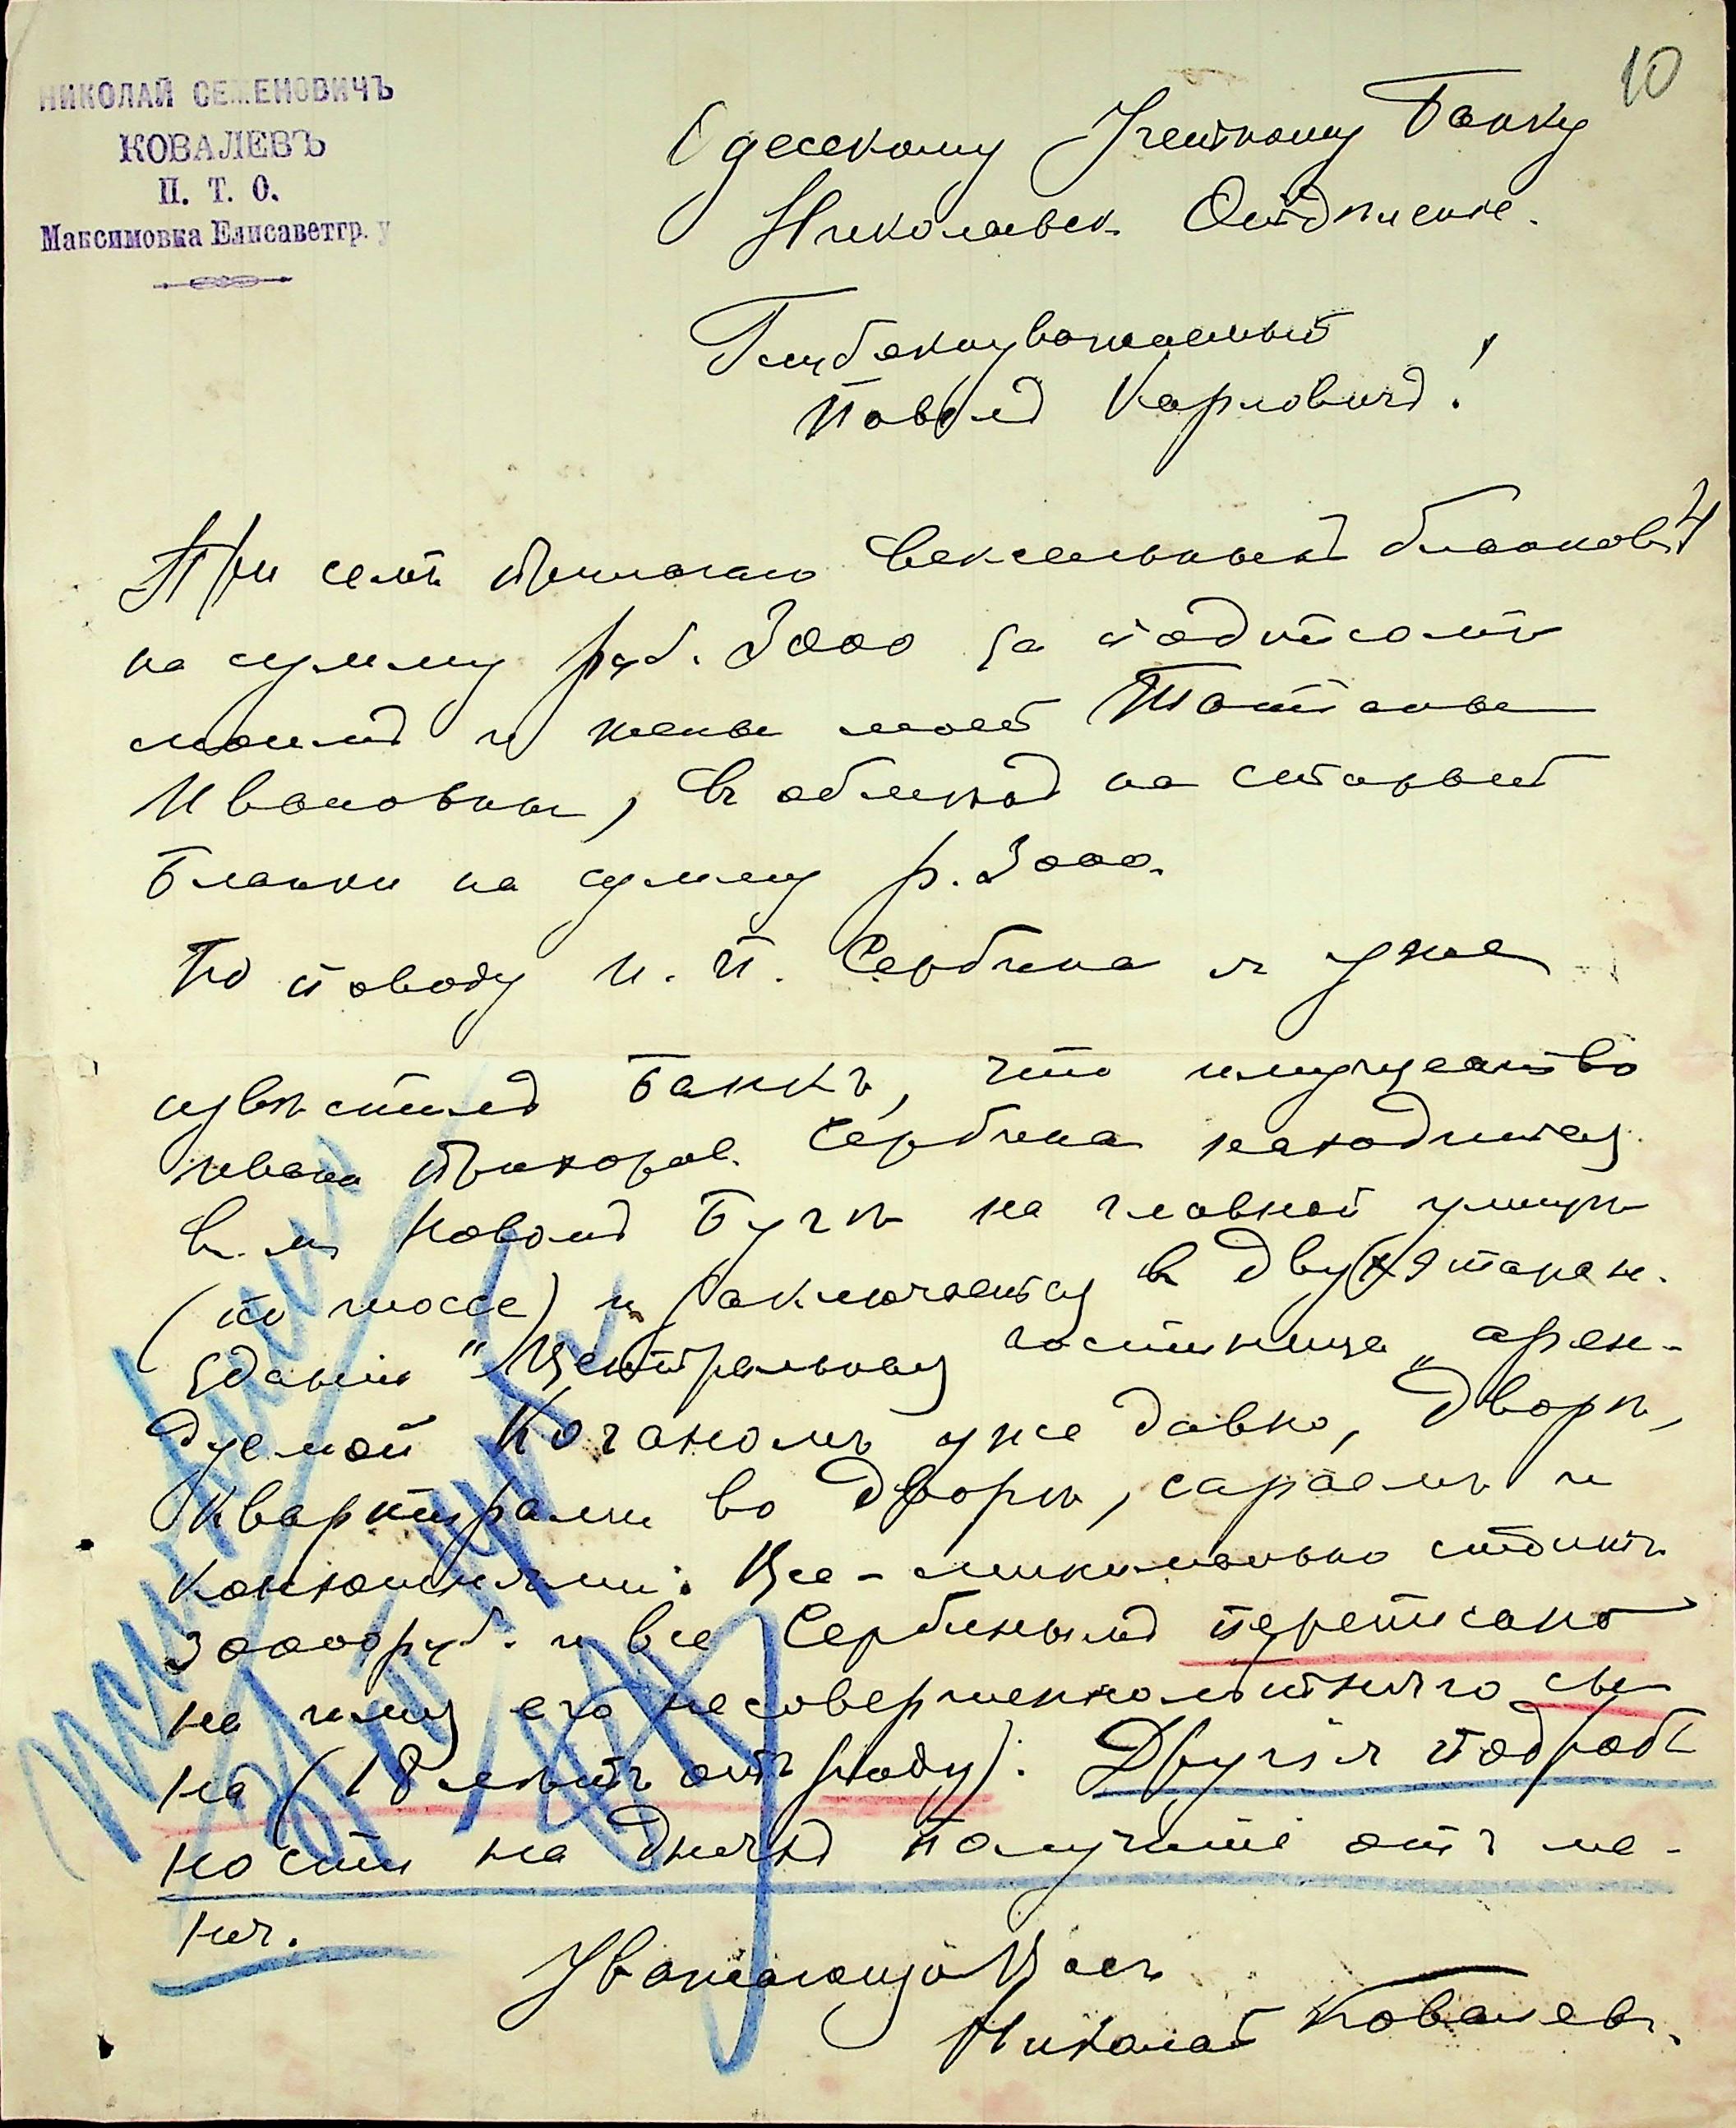 10
НИКОЛАЙ СЕМЕНОВИЧЪ
КОВАЛЕВЪ
П. Т. О.
Максимовка Елисаветгр. у
Одесскому Учетному Банку
Николаевск. Отдѣление.
Глубокоуважаемый
Павелъ Карловичъ!
При семъ прилагаю вексельныхъ бланковъ 4
на сумму руб. 3000 за подписомъ
моимъ и жены моей Татіаны
Ивановны, въ обмѣнъ на старый
бланки на сумму р. 3000.
По поводу И. П. Сербина я уже
извѣстилъ Банкъ, что имущество
Ивана Сербина находится
въ м. Новомъ Бугѣ на главной улицѣ
(по шоссе) и заключается въ двухэтажн.
зданіи "Центральная гостиница" арен-
дуемой Коганомъ уже давно, дворѣ,
квартирами во дворѣ, сараемъ и
конюшнями. Все - минимально стоитъ
30000 руб. и все Сербинымъ переписано
на имя его несовершеннолѣтняго сы-
на (18 лѣтъ отъ роду). Другія подроб-
ности на дняхъ получите отъ ме-
ня.
Уважающій Васъ
Николай Ковалевъ.